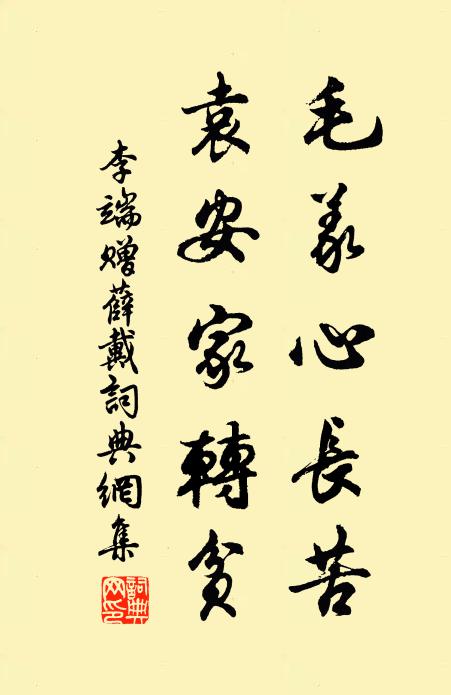 毛義心長苦
袁安家轉貧
李端贈薛戴詞典網集
詞典網印